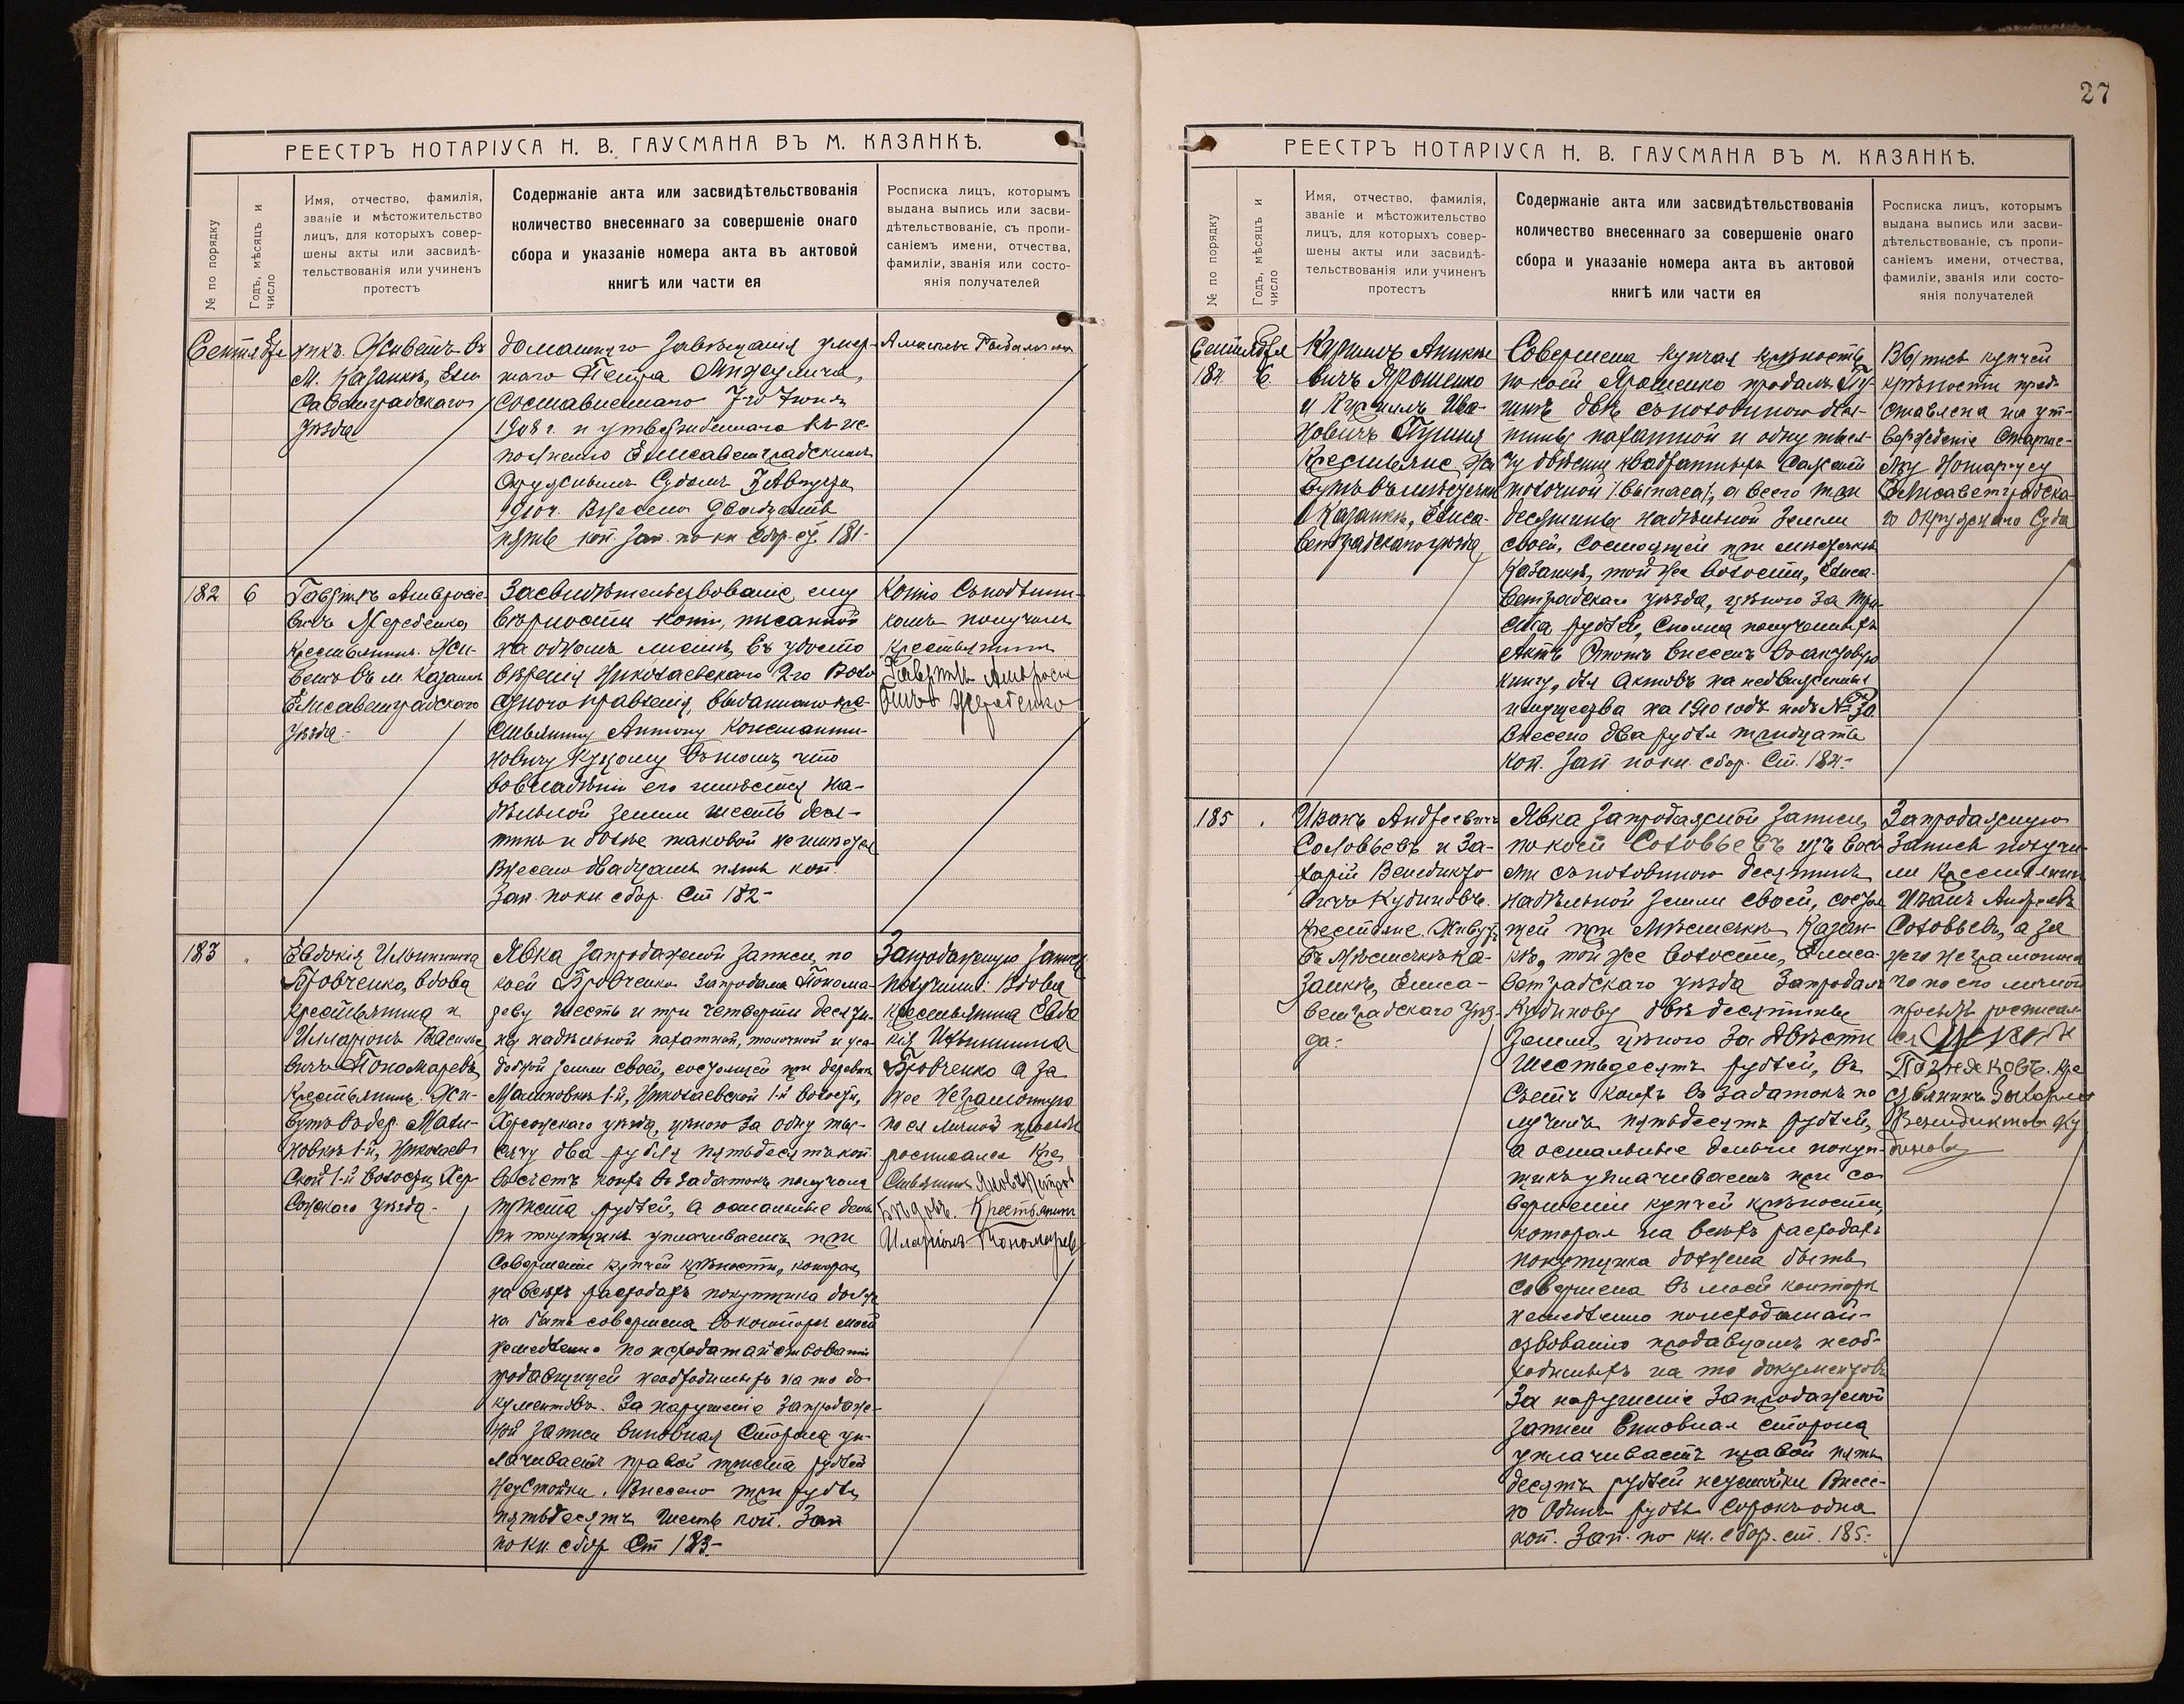 РЕЕСТРЪ НОТАРІУСА Н. В. ГАУСМАНА ВЪ М. КАЗАНКѢ.
№ по порядку
Годъ, мѣсяцъ и
число
Имя, отчество, фамилія,
званіе и мѣстожительство
лицъ, для которыхъ совер-
шены акты или засвидѣ-
тельствованія или учиненъ
протестъ
Содержаніе акта или засвидѣтельствованія
количество внесеннаго за совершеніе онаго
сбора и указаніе номера акта въ актовой
книгѣ или части ея
Росписка лицъ, которымъ
выдана выпись или засви-
дѣтельствованіе, съ пропи-
саніемъ имени, отчества,
фамиліи, званія или состо-
янія получателей
Сентября
Живетъ въ
М. Казанкѣ, Ели
саветградскаго
уѣзда
домашняго завѣщанія умер-
шаго Петра
составленнаго 7-го Іюня
1908 г. и утвержденнаго къ ис-
полненію Елисаветградскимъ
Окружнымъ Судомъ 3 Августа
1910 г. Внесено двадцать
пять коп. Зап. по кн. сбор. ст. 181-
182
6
Гавріилъ Амвросіе-
вичъ Жеребенко,
Крестьянинъ. Жи-
ветъ въ м. Казанкѣ
Елисаветградскаго
уѣзда.-
Засвидѣтельствованіе ему
вѣрности копіи, писанной
на одномъ листѣ, съ удосто
вѣренія Николаевскаго 2-го Воло
стного правленія, выданнаго кре-
стьянину Антону Константи-
новичу Куцому въ томъ, что
во владѣніи его имѣется на-
дѣльной земли шесть деся-
тинъ и болѣе таковой не имѣется
Внесено двадцать пять коп.
Зап. по кн. сбор. Ст 182-
Копію съ подлин-
комъ получилъ
крестьянинъ
Гавріилъ Амвросіе
вичъ Жеребенко
183
"
Евдокія Ильинична
Бровченко, вдова
крестьянина и
Илларіонъ Василье
вичъ Пономаревъ,
Крестьянинъ. Жи-
вутъ въ дер. Мали-
новкѣ 1-й, Николаев
ской 1-й волости, Хер-
сонскаго уѣзда.-
Явка запродажной записи, по
коей Бровченко запродала Понома-
реву шесть и три четверти десяти-
ны надѣльной пахатной, толочной и уса-
дебной земли своей, состоящей при деревнѣ
Малиновкѣ 1-й, Николаевской 1-й волости,
Херсонскаго уѣзда, цѣною за одну ты-
сячу два рубля пятьдесятъ коп.
въ счетъ коихъ въ задатокъ получила
триста рублей, а остальные день
ги покупщикъ уплачиваетъ при
совершеніи купчей крѣпости, которая,
на всѣхъ расходахъ покупщика долж
на быть совершена въ конторѣ моей
немедленно по исходатайствованіи
продавщицей необходимыхъ на то до
кументовъ. За нарушеніе запродаж-
ной записи виновная сторона уп-
лачиваетъ правой триста рублей
неустойки. Внесено три рубля
пятьдесятъ шесть коп. Зап
по кн. сбор Ст 183-
Запродажную запись
получили: Вдова
крестьянина Евдо
кія Ильинична
Бровченко а за
нее неграмотную
по ея личной просьбѣ
росписался Кре
стьянинъ Яковъ Петровъ
Бѣдовъ. Крестьянинъ
Иларіонъ Пономаревъ
27
РЕЕСТРЪ НОТАРІУСА Н. В. ГАУСМАНА ВЪ М. КАЗАНКѢ.
№ по порядку
Годъ, мѣсяцъ и
число
Имя, отчество, фамилія,
званіе и мѣстожительство
лицъ, для которыхъ совер-
шены акты или засвидѣ-
тельствованія или учиненъ
протестъ
Содержаніе акта или засвидѣтельствованія
количество внесеннаго за совершеніе онаго
сбора и указаніе номера акта въ актовой
книгѣ или части ея
Росписка лицъ, которымъ
выдана выпись или засви-
дѣтельствованіе, съ пропи-
саніемъ имени, отчества,
фамиліи, званія или состо-
янія получателей
Сентября
184
6
Кириллъ Аникіе
вичъ Ярошенко
и Кириллъ Ива-
новичъ
Крестьяне. Жи
вутъ въ мѣстечкѣ
Казанкѣ, Елиса-
ветградскаго уѣзда
Совершена купчая крѣпость,
по коей Ярошенко продалъ
двѣ съ половиною деся-
тины пахатной и одну тыся-
чу двѣсти квадратныхъ саженъ
толочной /выпаса/, а всего три
десятины надѣльной земли
своей, состоящей при мѣстечкѣ
Казанкѣ, той же волости, Елиса-
ветградскаго уѣзда, цѣною за три-
ста рублей, сполна полученныхъ
Актъ этотъ внесенъ въ актовую
книгу, для актовъ на недвижимыя
имущества на 1910 годъ подъ № 30.
Внесено два рубля тридцать
коп. Зап. по кн. сбор. Ст. 184.-
Выпись купчей
крѣпости пред-
ставлена на ут-
вержденіе Старше-
му Нотаріусу
Елисаветградска-
го Окружнаго Суда
185
"
Иванъ Андреевичъ
Соловьевъ и За-
харій Венедикто
вичъ Кудиновъ.
Крестьяне. Живутъ
въ Мѣстечкѣ Ка-
занкѣ, Елиса-
ветградскаго уѣз-
да.-
Явка запродажной записи,
по коей Соловьевъ изъ вось
ми съ половиною десятинъ
надѣльной земли своей, состоя
щей при Мѣстечкѣ Казан-
кѣ, той же волости, Елиса-
ветградскаго уѣзда запродалъ
Кудинову двѣ десятины
земли, цѣною за двѣсти
шестьдесятъ рублей, въ
счетъ коихъ въ задатокъ по
лучилъ пятьдесятъ рублей,
а остальные деньги покуп-
щикъ уплачиваетъ при со
вершеніи купчей крѣпости,
которая на всѣхъ расходахъ
покупщика должна быть
совершена въ моей конторѣ
немедленно по исходатай-
ствованію продавцомъ необ-
ходимыхъ на то документовъ
За нарушеніе запродажной
записи виновная сторона
уплачиваетъ правой пять
десятъ рублей неустойки Внесе-
но одинъ рубль сорокъ одна
коп. Зап. по кн. сбор. ст. 185.-
Запродажную
запись получи-
ли крестьянинъ
Иванъ Андреевъ
Соловьевъ, а за
него неграмотна
го по его личной
просьбѣ росписал
ся
кре
стьянинъ Захарій
Венидиктовъ Ку
диновъ